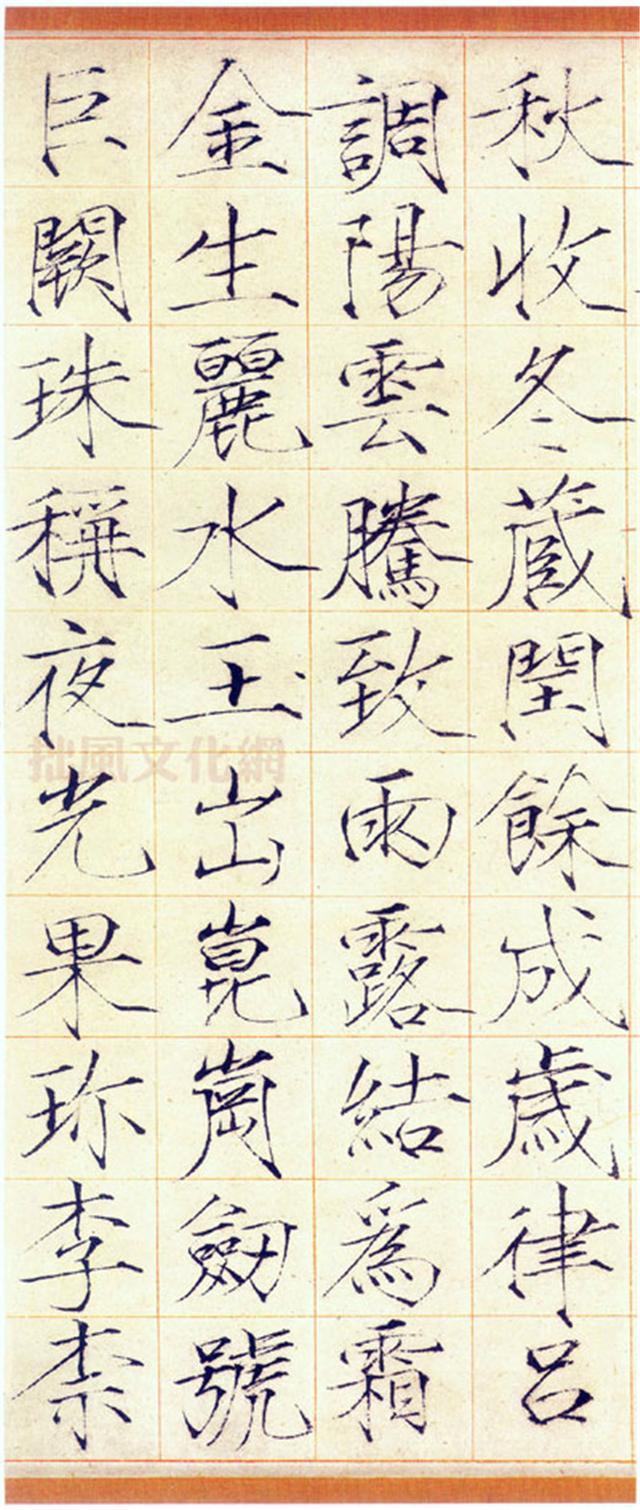 秋收冬蔵閏餘成歳律呂
調陽雲騰致雨露結爲霜
金生麗水玉出崑崗劒號
巨闕珠稱夜光果珎李柰
拙風文化網